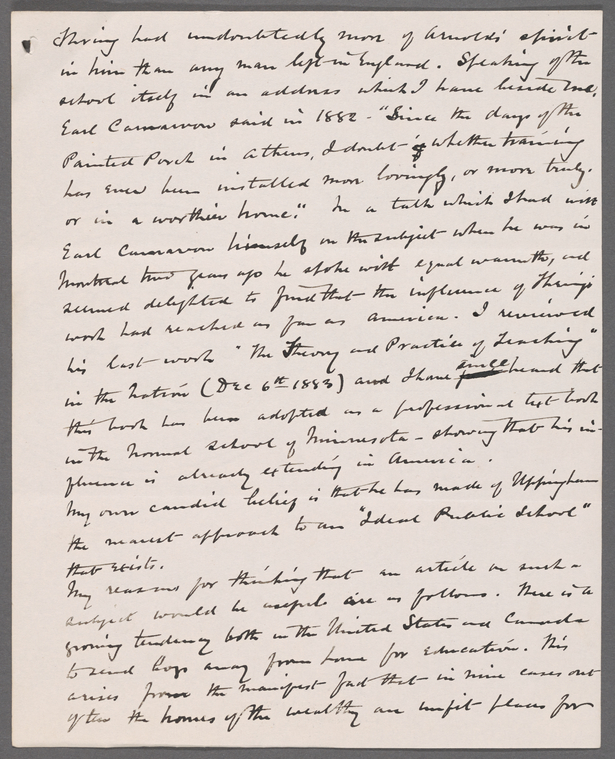 Thring had undoubtedly more of Arnold's spirit
in him than any man left in England. Speaking of the
school itself in an address which I have beside me,
Earl Carnarvon said in 1882 - "Since the days of the
Painted Porch in Athens, I doubt whether training
has ever been installed more lovingly, or more truly.
or in a worthier home." In a talk which I had with
Earl Carnarvon himself on the subject when he was in
Montreal two years ago he spoke with equal warmth, and
seemed delighted to find that the influence of Thring's
work had reached as far as America. I reviewed
his last work "The Theory and Practice of Teaching"
in the Nation (Dec 6th 1883) and I have since heard that
this book has been adopted as a professional text book
in the Normal School of Minnesota - showing that his in-
fluence is already extending in America.
My own candid belief is that he has made of Uppingham
the nearest approach to an "Ideal Public School"
that exists.
My reasons for thinking that an article on such a
subject would be useful are as follows. There is a
growing tendency both in the United States and Canada
to send boys away from home for education. This
arises from the manifest fact that in nine cases out
of ten the homes of the wealthy are unfit places for